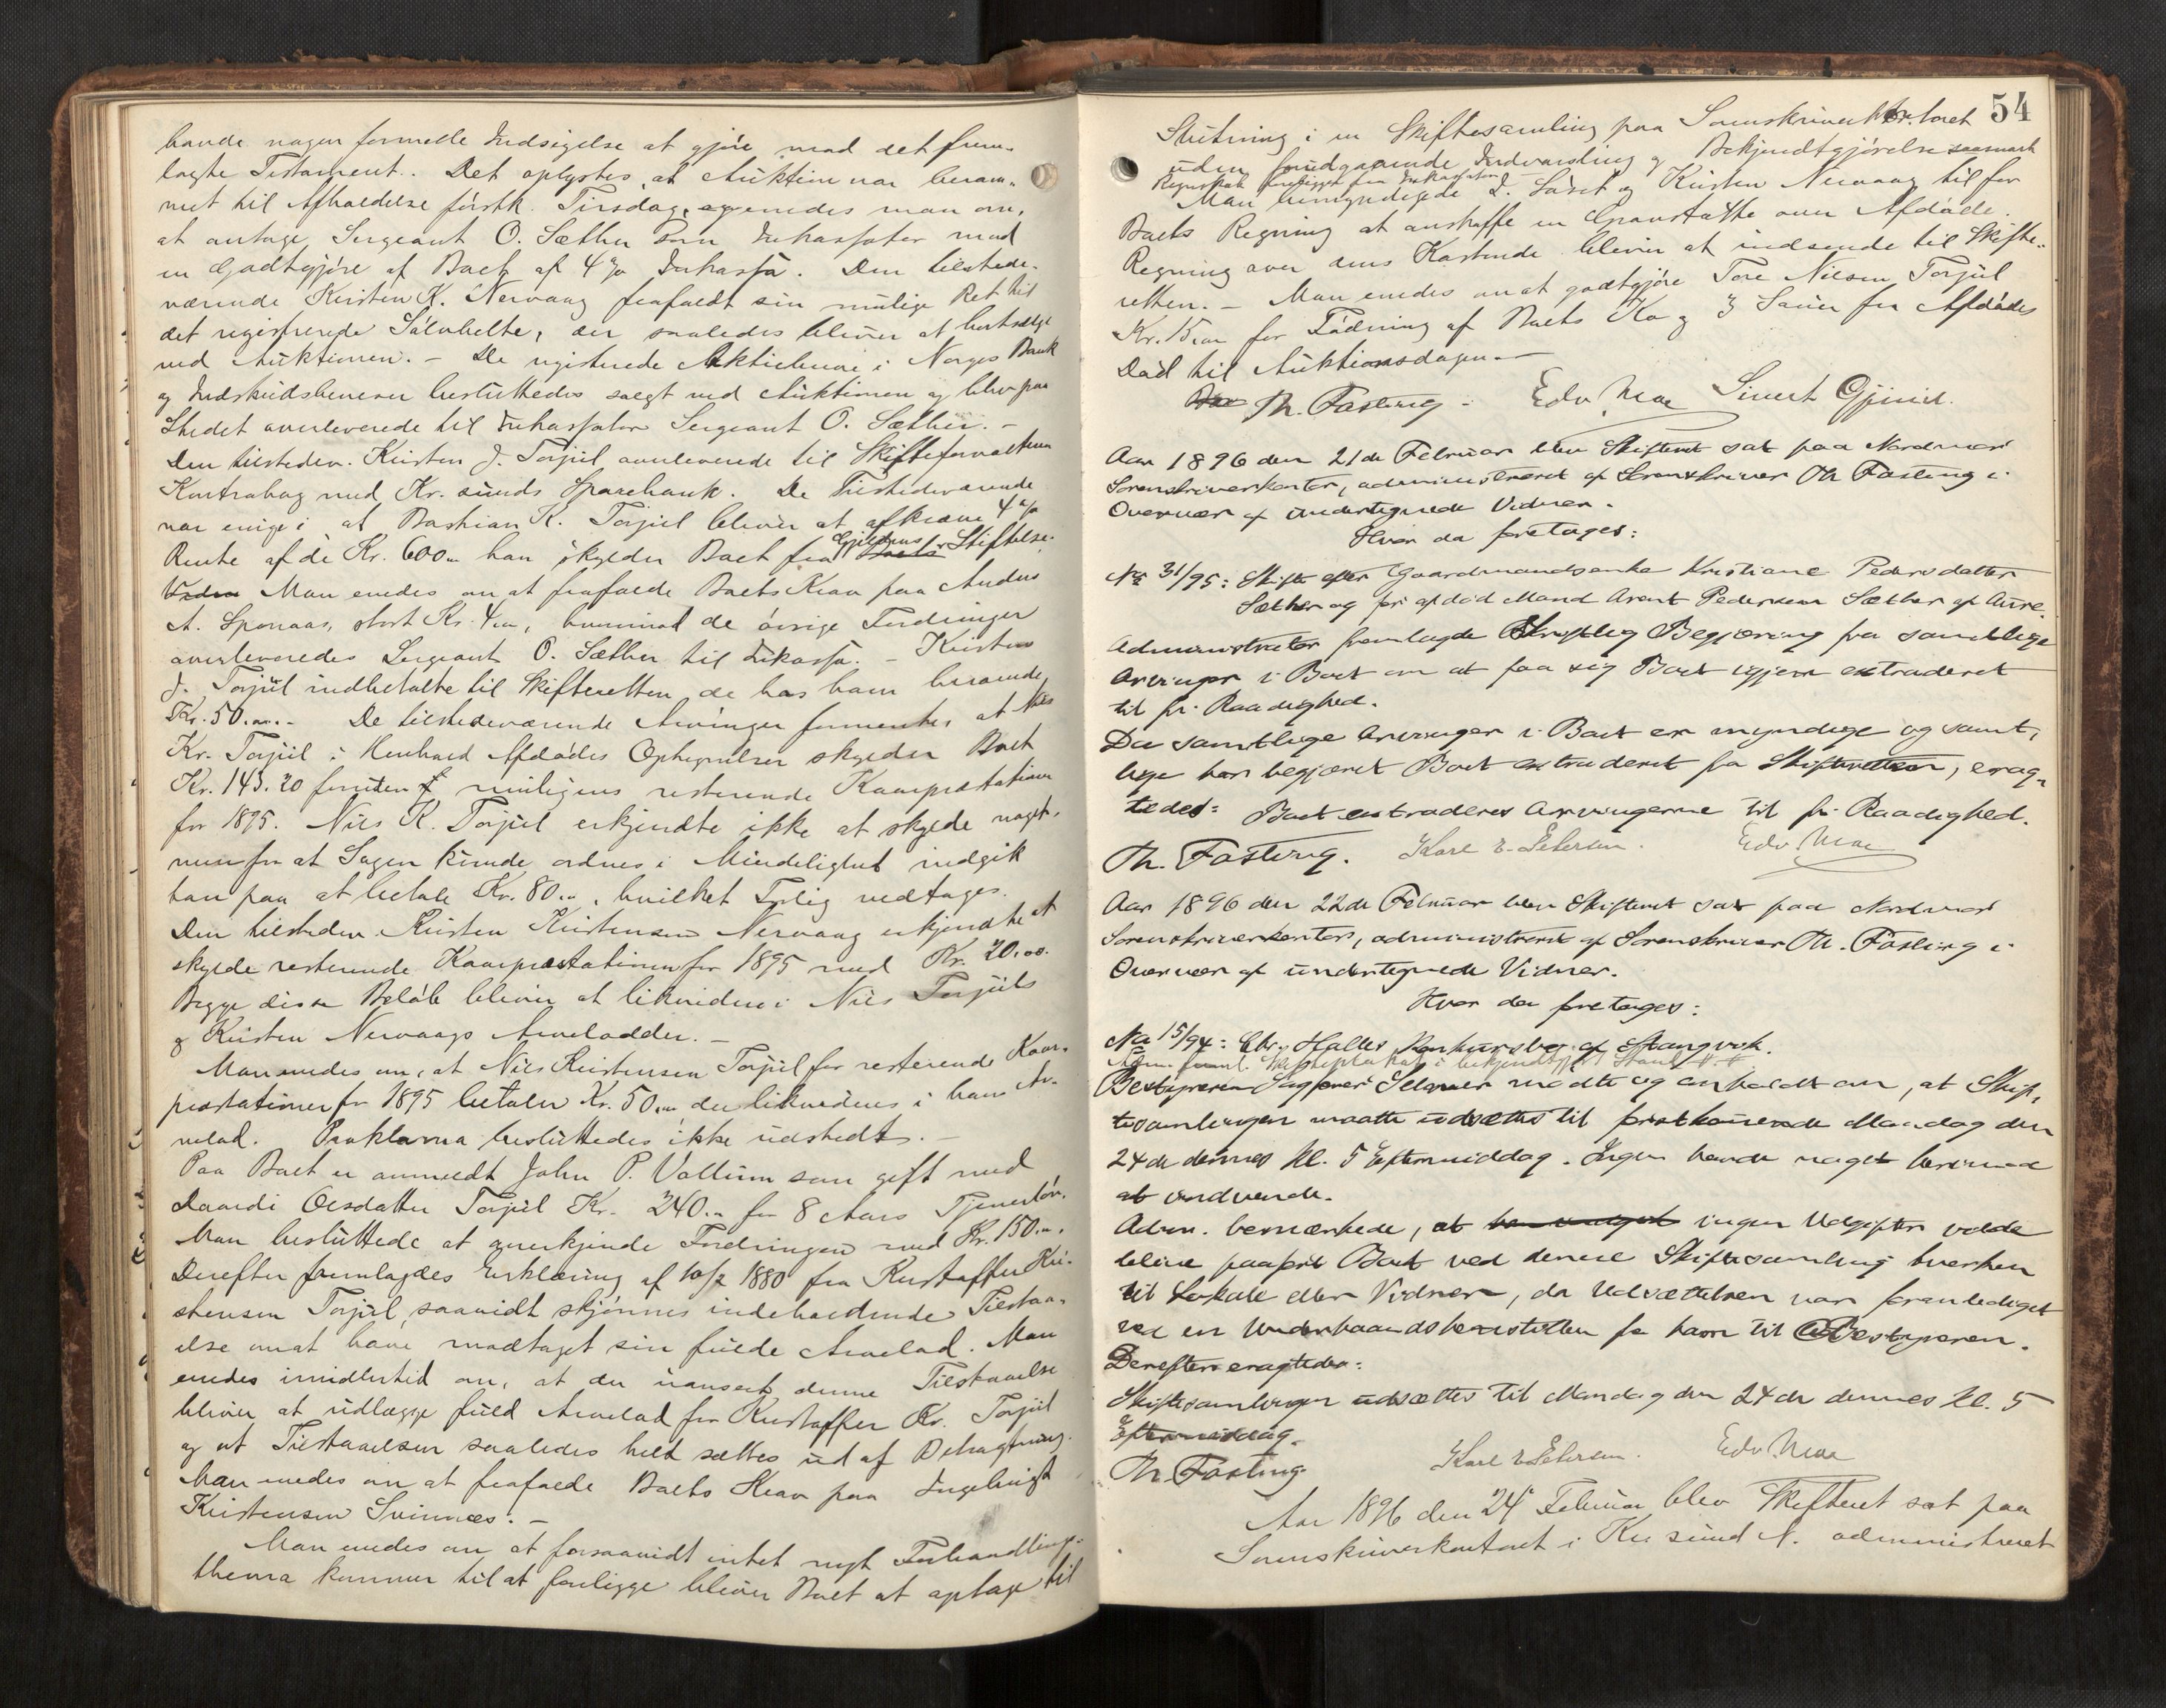 havde nogen formelle Indsigelse at gjøre mod det frem-
lagte Testament. Det oplystes, at Auktion var beram-
met til Afholdelse førstk. Tirsdag, og enedes man om,
at antage Sergeant O. Sæther som Inkassator mod
en Godtgjøre af Boet af 4 % Inkasso. Den tilstede-
værende Kirsten K. Nervaag frafaldt sin mulige Ret til
det registrerede Sølvbelte, der saaledes bliver at bortsælge
ved Auktionen. - De registrerede Aktiebreve i Norges Bank
og Indskudsbeviser besluttedes solgt ved Auktionen og blev paa
Stedet overleverede til Inkassator Sergeant O. Sæther. -
Den tilstedev. Kristen J. Torjul overleverede til Skifteforvalteren
Kontrabog med Kr.sunds Sparebank. De Tilstedeværende
var enige i at Bastian K. Torjul bliver at afkræve 4 %
Rente af de Kr. 600.- han skylder Boet fra Gjeldens Boets Stiftelse.
Man enedes om at frafalde Boets Krav paa Anders
A. Sponaas, stort Kr. 4.-, hvorimod de øvrige Fordringer
overleveredes Sergeant O. Sæther til Inkasso. - Kristen
J. Torjul indbetalte til Skifteretten de hos ham beroende
Kr. 50.00.- De tilstedeværende Arvinger formentes at Nils
Kr. Torjul i Henhold Afdødes Optegnelser skylder Boet
Kr. 143.20 foruden muligens resterende Kaarprestationer
for 1895. Nils K. Torjul erkjendte ikke at skylde noget,
men for at Sagen kunde ordnes i Mindelighet indgik
han paa at betale Kr. 80.-, hvilket Forlig vedtages.
Den tilstedev. Kristen Kristensen Nervaag erkjendte at
skylde resterende Kaarprestationer for 1895 med Kr. 20.00.
Begge disse Beløb bliver at likvidere i Nils Torjuls
og Kristen Nervaags Arvelodder. -
Man enedes om, at Nils Kristensen Torjul for resterende Kaar-
prestationer for 1895 betaler Kr. 50.- der likvideres i hans Ar-
velod. Proklama besluttedes ikke udstedt. -
Paa Boet er anmeldt John P. Vollum som gift med
Daardi Olsdatter Torjul Kr. 240.- for 8 Aars Tjenerløn.
Man besluttede at anerkjende Fordringen med Kr. 150.-.
Derefter fremlagdes Erklæring af 10/2 1880 fra Kristoffer Kri-
stensen Torjul, saavidt skjønnes indeholdende Tilstaa-
else om at have modtaget sin fulde Arvelod. Man
enedes imidlertid om, at der uanset denne Tilstaaelse
bliver at udlægge fuld Arvelod for Kristoffer Kr. Torjul
og at Tilstaaelsen saaledes helt sættes ud af Betragtning.
Man enedes om at frafalde Boets Krav paa Ingebrigt
Kristensen Svinnæs. -
Man enedes om at forsaavidt intet nyt Forhandlings-
thema kommer til at foreligge bliver Boet at optage til
54
Slutning i en Skiftesamling paa Sorenskriverkontoret
uden forudgaaende Indvarsling og Bekjendtgjørelse saasnart
Regnskab foreligger fra Inkassator
Man bemyndigede J. Søset og Kristen Nervaag til for
Boets Regning at anskaffe en Gravstøtte over Afdøde.
Regning over dens Kostende bliver at indsende til Skifte-
retten. - Man enedes om at godtgjøre Tore Nilsen Torjul
Kr. 15.00 for Fødning af Boets Ko og 3 Sauer fra Afdødes
Død til Auktionsdagen. -
Th. Fasting. Edv Moe Sivert Gjerul.
Aar 1896 den 21de Februar blev Skifteret sat paa Nordmør
Sorenskriverkontor, administreret af Sorenskriver Th Fasting i
Overvær af undertegnede Vidner.
Hvor da foretages:
No 31/95: Skifte efter Gaardmandsenke Kristiane Pedersdatter
Sæther og før afdød Mand Arent Pedersen Sæther af Aure.
Administrator fremlagde Skriftlig Begjæring fra samtlige
Arvinger i Boet om at faa sig Boet igjen extraderet
til fri Raadighed.
Da samtlige Arvinger i Boet er myndige og samt,
lige har begjæret Boet extraderet fra Skifteretten, erag-
tedes: Boet extraderes Arvingerne til fri Raadighed.
Th. Fasting. Karl E. Petersen. Edv Moe
Aar 1896 den 22de Februar blev Skifteret sat paa Nordmør
Sorenskriverkontor, administreret af Sorenskriver Th. Fasting i
Overvær af undertegnede Vidner.
Hvor da foretages:
No 15/94: Chr. Halles Konkursbo af Stangvik.
Adm. freml. Skifteplakat i bekjendtgjort Stand
Bestyreren Sagfører Selmer mødte og anholdt om, at Skif,
tesamlingen maatte udsættes til førstkommende Mandag den
24de dennes Kl. 5 Eftermiddag. Ingen havde noget herimod
at indvende.
Adm. bemærkede, at ingen Udgifter vilde
blive paaført Boet ved denne Skiftesamling hverken
til Lokale eller Vidner, da Udsættelsen var foranlediget
ved en Underhaandshenstillen fra ham til Bestyreren.
Derefter eragtedes:
Skiftesamlingen udsættes til Mandag den 24de dennes Kl. 5
Eftermiddag.
Th. Fasting. Karl E. Petersen. Edv Moe
Aar 1896 den 24 Februar blev Skifteret sat paa
Sorenskriverkontoret i Kr.sund N. administreret